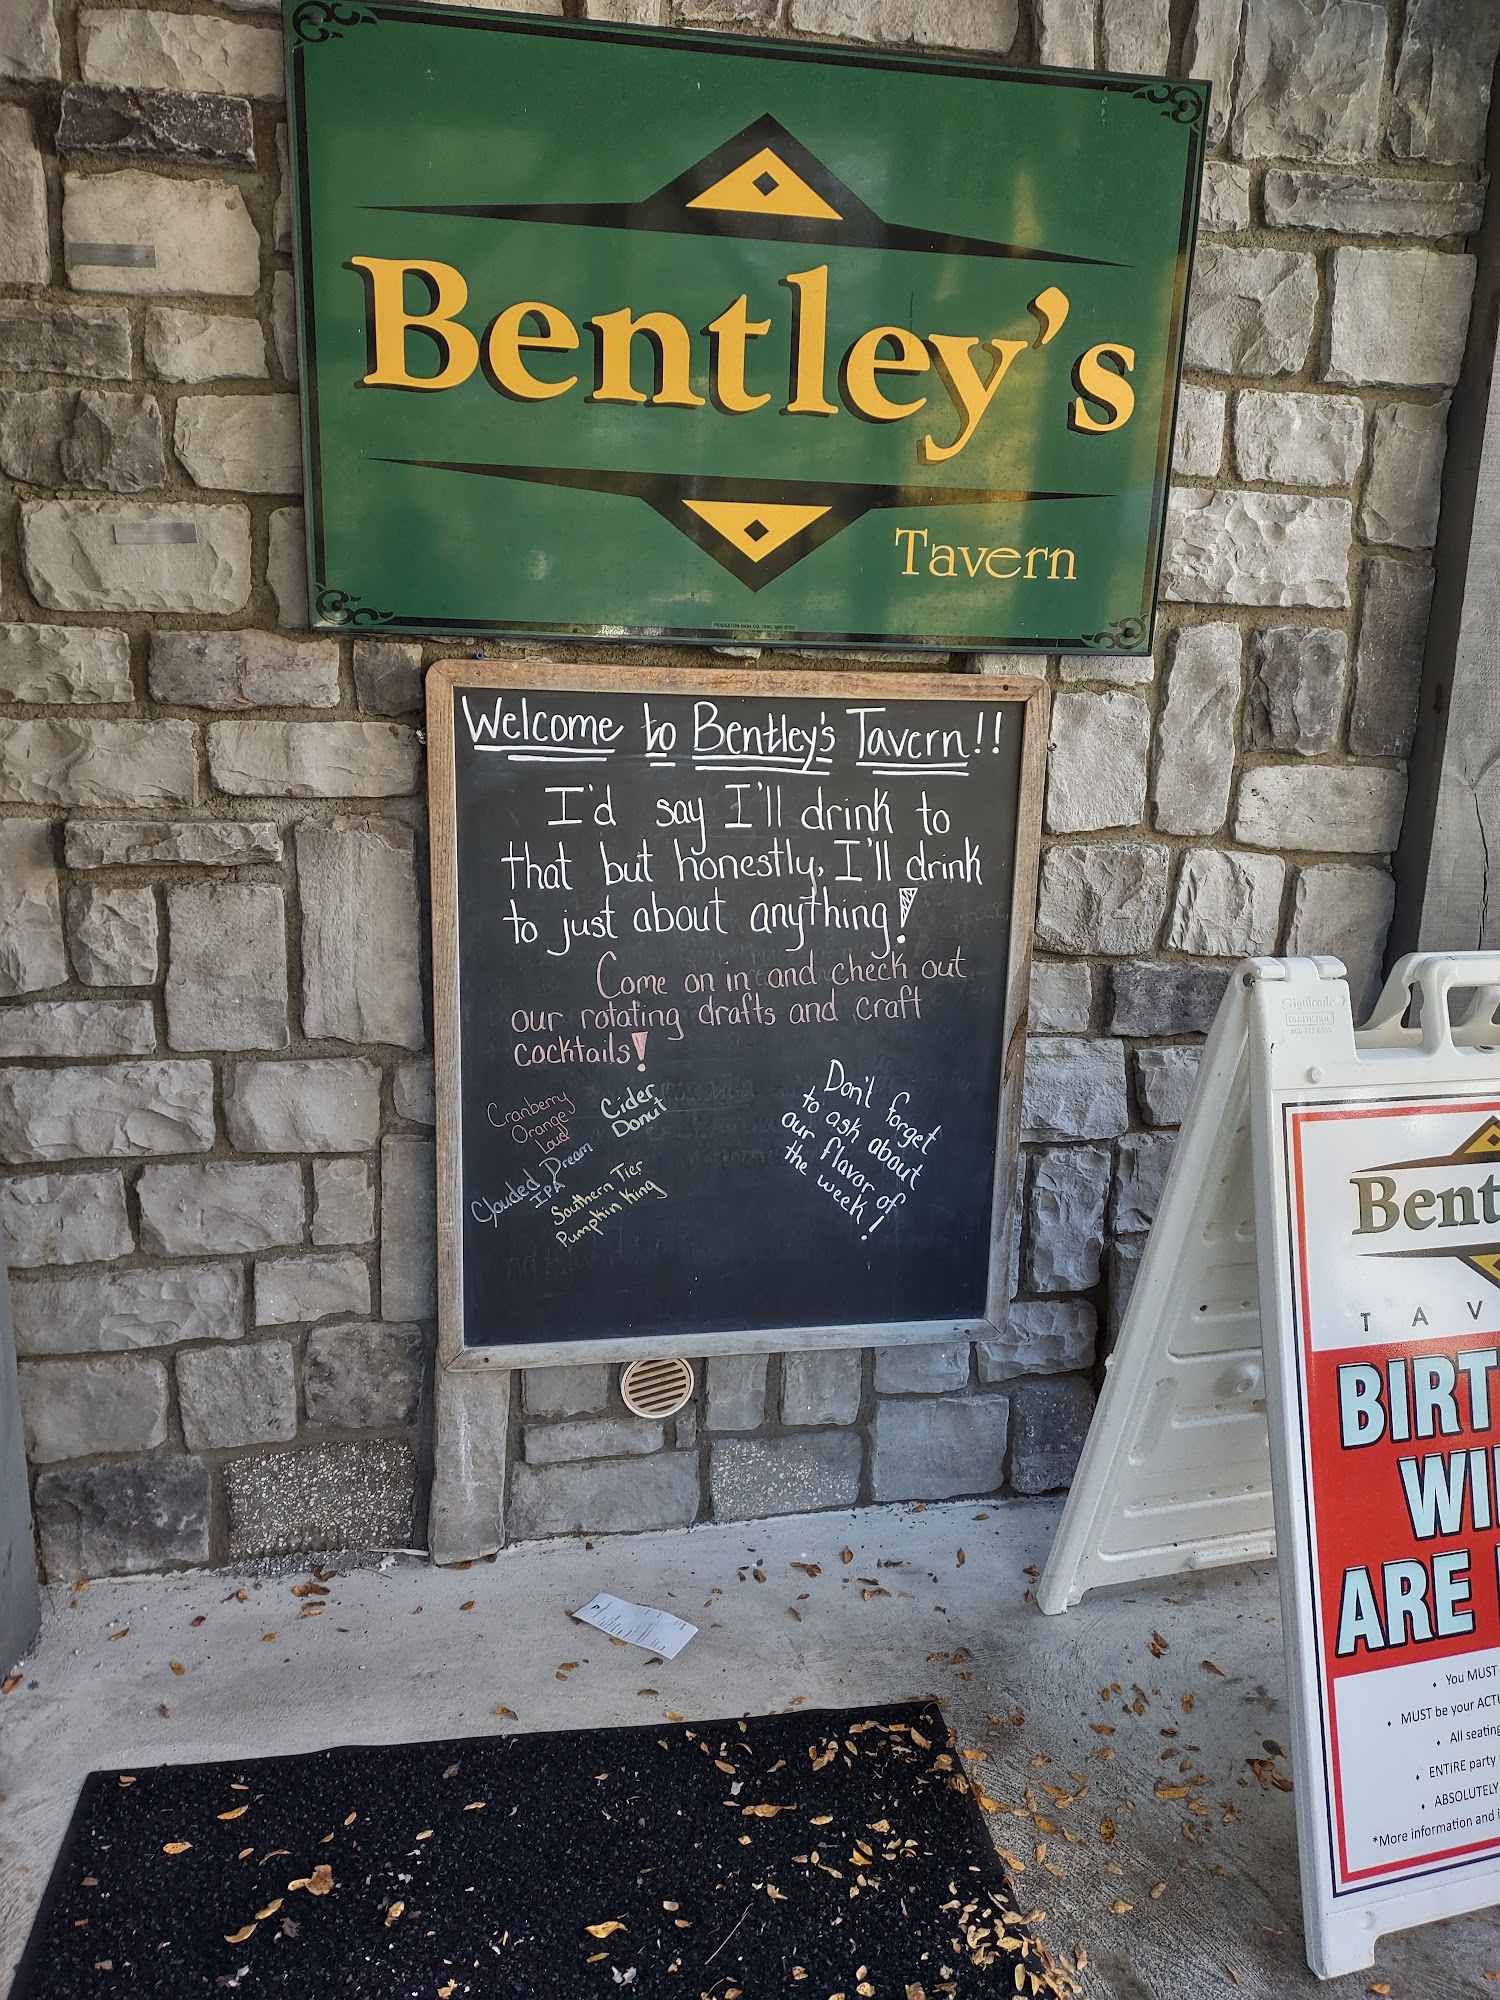 Bentley's
Tavern
Welcome to Bentley's Tavern!!
I'd say I'll drink to
that but honestly, I'll drink
to just about anything!
Come on in and check out
our rotating drafts and craft
cocktails!
Cranberry
Orange
Loud
Cider
Donut
Clouded Dream
IPA
Southern Tier
Pumpkin King
Don't forget
to ask about
our flavor of
the week!
Signicade
Bent
T A V
BIRT
WI
ARE
• You MUST
• MUST be your ACTU
• All seating
• ENTIRE party
• ABSOLUTELY
*More information and